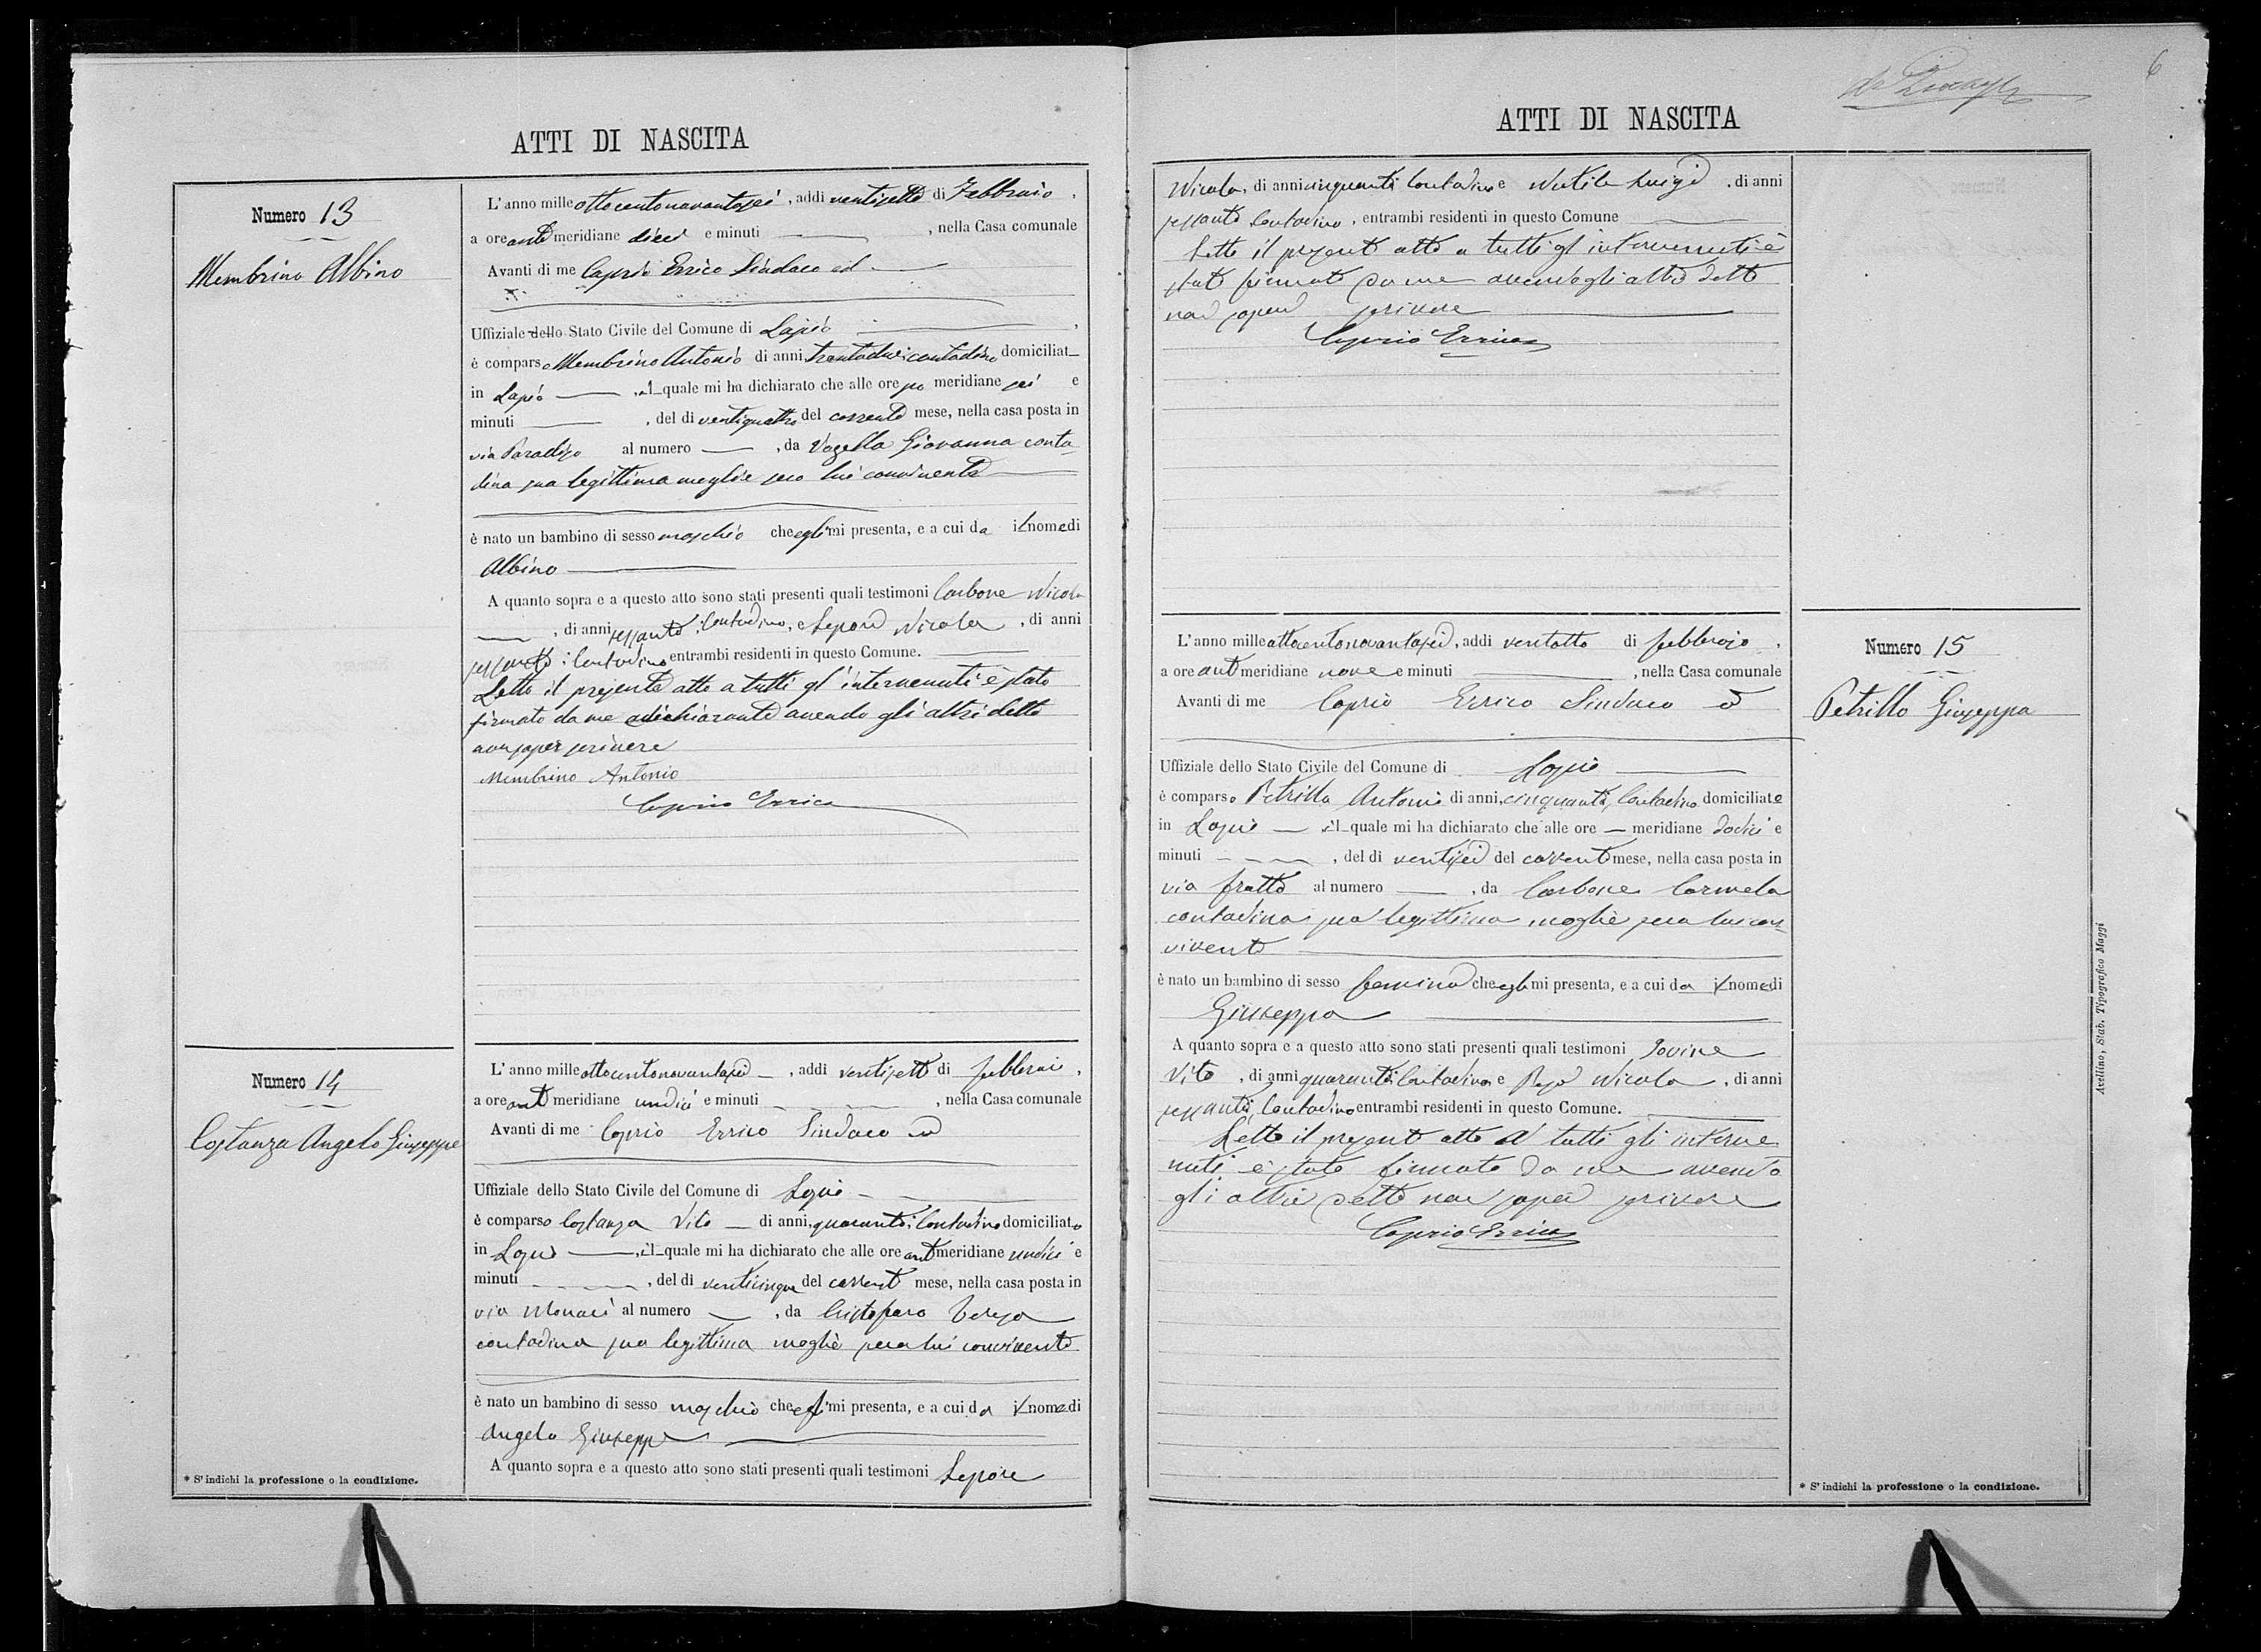 ATTI DI NASCITA
Numero 13
Membrino Albino
L'anno mille ottocentonovantasei, addi ventisette di Febbraio,
a ore anti meridiane dieci e minuti , nella Casa comunale
Avanti di me Caprio Errico Sindaco ed
Uffiziale dello Stato Civile del Comune di Lapio
è comparso Membrino Antonio di anni trentadue; contadino domiciliat
in Lapio , il quale mi ha dichiarato che alle ore po meridiane sei e
minuti , del dì ventiquattro del corrente mese, nella casa posta in
via Paradiso al numero , da Vozella Giovanna conta-
dina sua legittima moglie seco lui convivente
è nato un bambino di sesso maschio che egli mi presenta, e a cui da il nome di
Albino
A quanto sopra e a questo atto sono stati presenti quali testimoni Carbone Nicola
, di anni sessanta, contadino, e Lepore Nicola, di anni
sessanta; contadino entrambi residenti in questo Comune.
Letto il presente atto a tutti gl'intervenuti è stato
firmato da me e dichiarante avendo gli altri detto
non saper scrivere
Membrino Antonio
Caprio Errico
Numero 14
Costanza Angelo Giuseppe
L'anno mille ottocentonovantasei, addi ventisette di febbraio,
a ore ant meridiane undici e minuti , nella Casa comunale
Avanti di me Caprio Errico Sindaco ed
Uffiziale dello Stato Civile del Comune di Lapio
è comparso Costanza Vito di anni quaranta; Contadino domiciliato
in Lapio , il quale mi ha dichiarato che alle ore ant meridiane undici e
minuti , del dì venticinque del corrent mese, nella casa posta in
via Monaci al numero , da Cristofaro Teresa
contadina sua legittima moglie seco lui convivente
è nato un bambino di sesso maschio che egli mi presenta, e a cui da il nome di
Angelo Giuseppe
A quanto sopra e a questo atto sono stati presenti quali testimoni Lepore
* S'indichi la professione o la condizione.
6
ATTI DI NASCITA
Nicola, di anni cinquanta Contadino e Nutile Luigi, di anni
sessanta Contadino, entrambi residenti in questo Comune
Letto il present atto a tutti gl'intervenuti è
stato firmato da me avendo gli altri detto
non saper scrivere
Caprio Errico
Numero 15
Petrillo Giuseppa
L'anno mille ottocentonovantasei, addi ventotto di febbraio,
a ore ant meridiane nove e minuti , nella Casa comunale
Avanti di me Caprio Errico Sindaco ed
Uffiziale dello Stato Civile del Comune di Lapio
è comparso Petrillo Antonio di anni cinquanta, Contadino domiciliato
in Lapio il quale mi ha dichiarato che alle ore meridiane dodici e
minuti , del dì ventisei del corrente mese, nella casa posta in
via fratte al numero , da Carbone Carmela
contadina sua legittima moglie seco lui con-
vivente
è nato un bambino di sesso femmina che egli mi presenta, e a cui da il nome di
Giuseppa
A quanto sopra e a questo atto sono stati presenti quali testimoni Iovine
Vito, di anni quaranta Contadino e Nicola, di anni
sessanta, Contadino entrambi residenti in questo Comune.
Letto il present atto a tutti gli interve
nuti è stato firmato da me avendo
gli altri detto non saper scrivere
Caprio Errico
* S'indichi la professione o la condizione.
Avellino, Stab. Tipografico Maggi